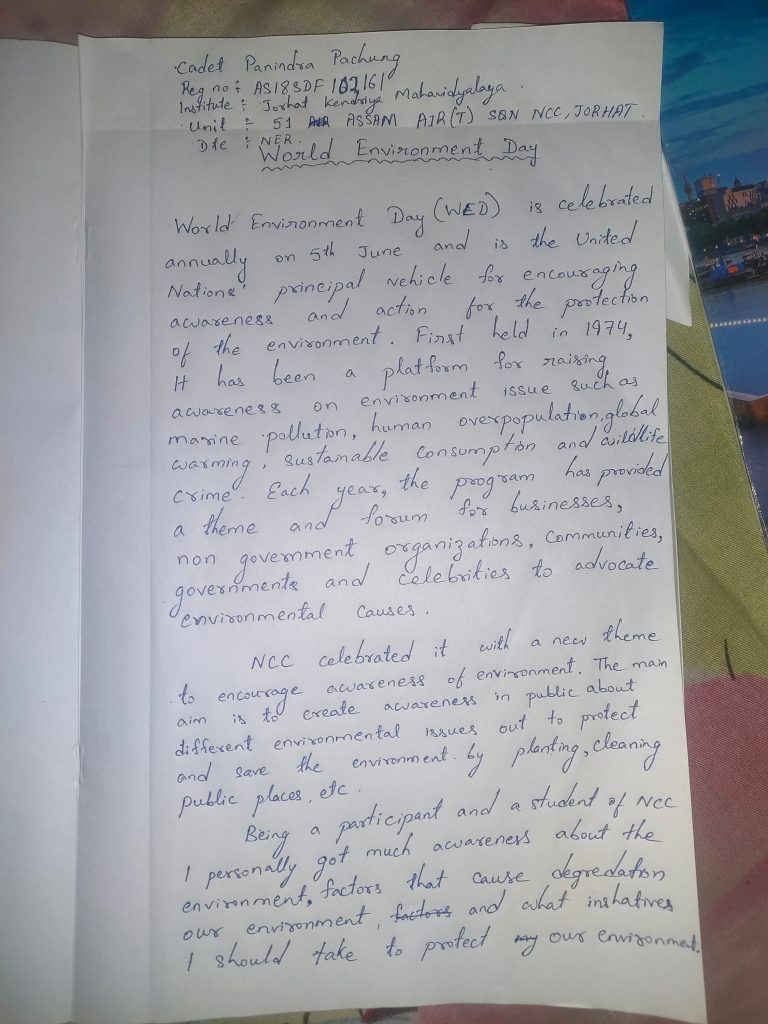 Cadet Panindra Pachung
Reg no : AS18SDF
Institute : Jorhat Kendriya Mahavidyalaya.
Unit : 51 ASSAM AIR(T) SQN NCC, JORHAT.
Dte : NER.
World Environment Day
World Environment Day (WED) is celebrated
annually on 5th June and is the United
Nations' principal vehicle for encouraging
awareness and action for the protection
of the environment. First held in 1974,
It has been a platform for raising
awareness on environment issue such as
marine pollution, human overpopulation, global
warming, sustainable consumption and wildlife
crime. Each year, the program has provided
a theme and forum for businesses,
non government organizations, Communities,
governments and celebrities to advocate
environmental causes.
NCC celebrated it with a new theme
to encourage awareness of environment. The main
aim is to create awareness in public about
different environmental issues out to protect
and save the environment by planting, cleaning
public places, etc.
Being a participant and a student of NCC
I personally got much awareness about the
environment, factors that cause degredation
our environment, factors and what inshatives
I should take to protect my our environment.